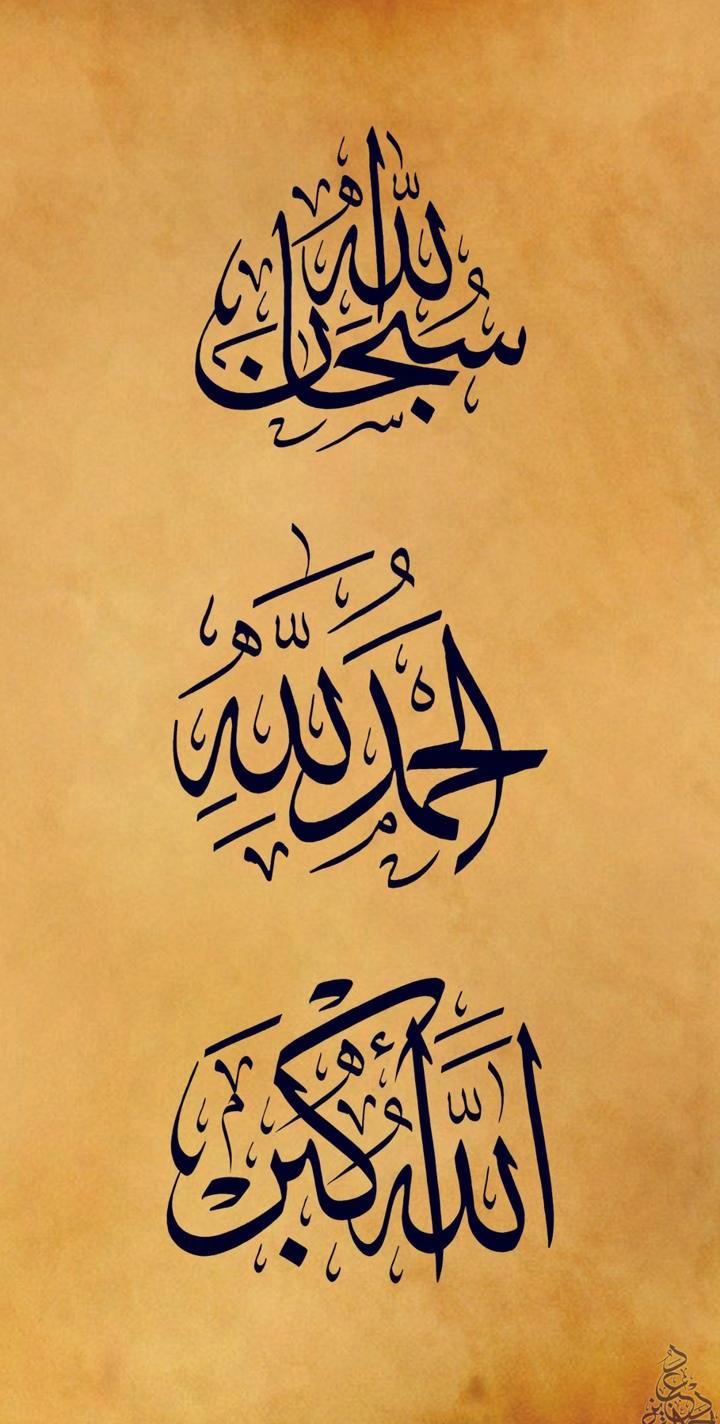 سُبْحَانَ اللّٰه
الْحَمْدُ لِلّٰهِ
اللّٰهُ أَكْبَرْ